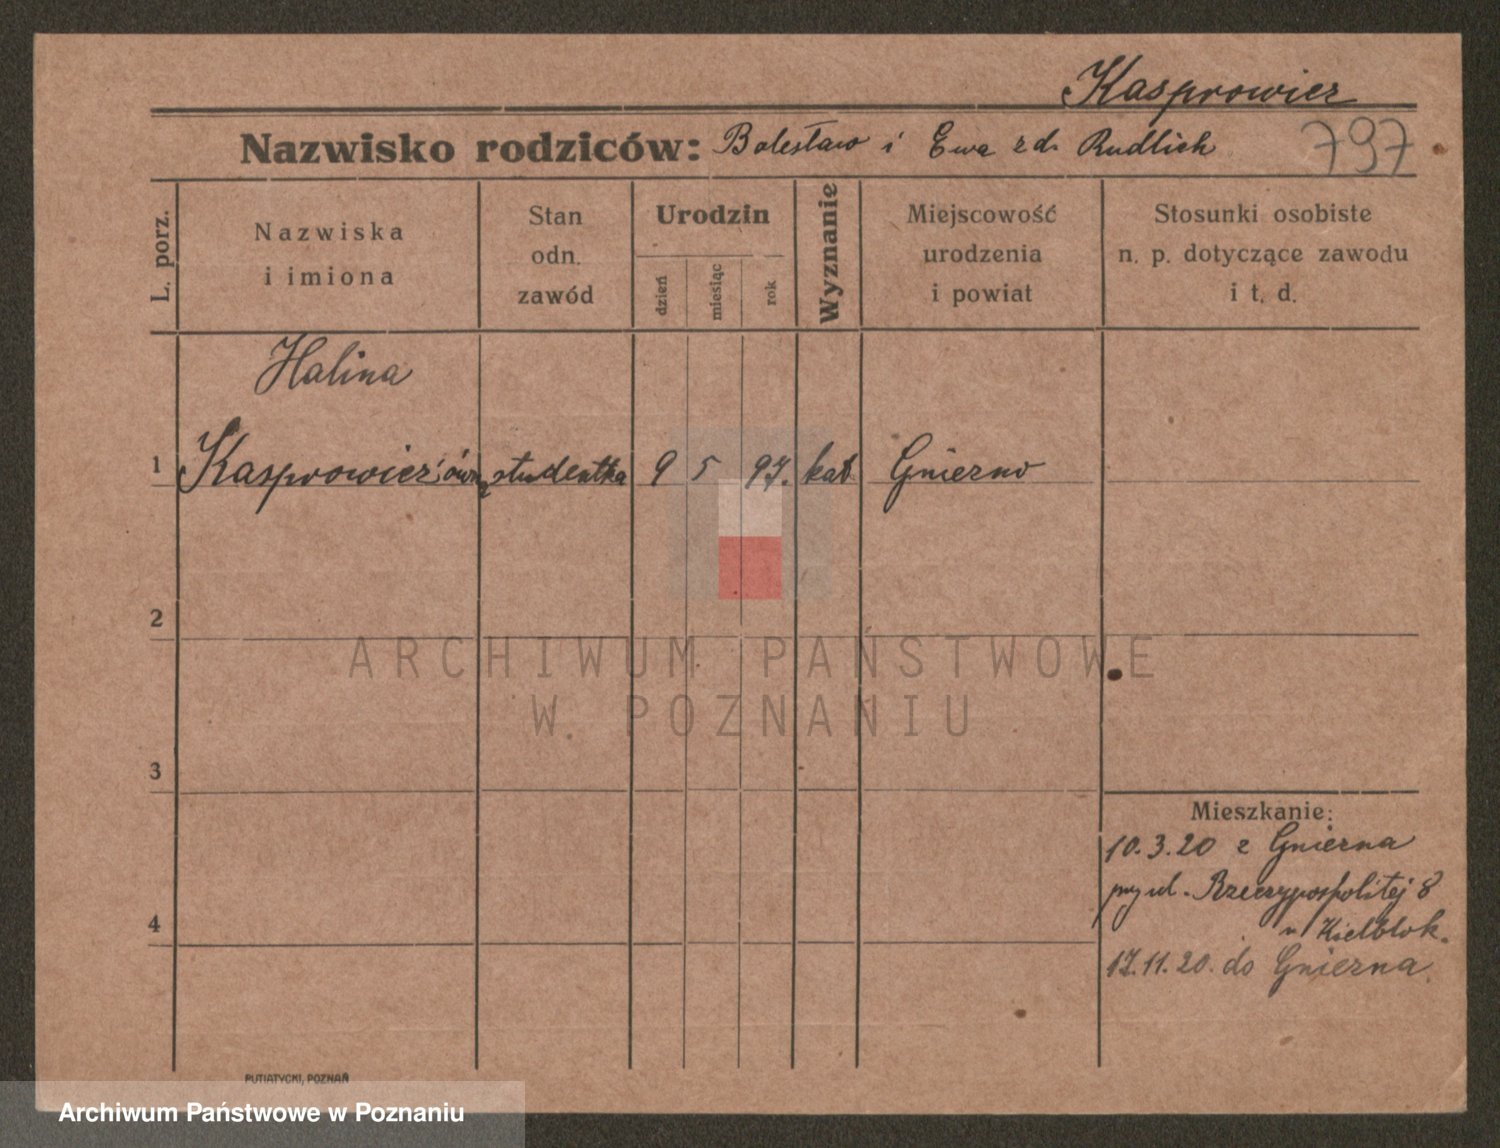 Kasprowicz
Nazwisko rodziców: Bolesław i Ewa zd. Rudlich
797
L. porz.
Nazwiska
i imiona
Stan
odn.
zawód
Urodzin
dzień
miesiąc
rok
Wyznanie
Miejscowość
urodzenia
i powiat
Stosunki osobiste
n. p. dotyczące zawodu
i t. d.
Halina
1 Kasprowiczówna studentka 9 5 97. kat Gniezno
2
ARCHIWUM PAŃSTWOWE
W POZNANIU
3
Mieszkanie:
10.3.20 z Gniezna
przy ul. Rzeczypospolitej 8
4
u Kielblok.
17.11.20. do Gniezna.
PUTIATYCKI, POZNAŃ
Archiwum Państwowe w Poznaniu